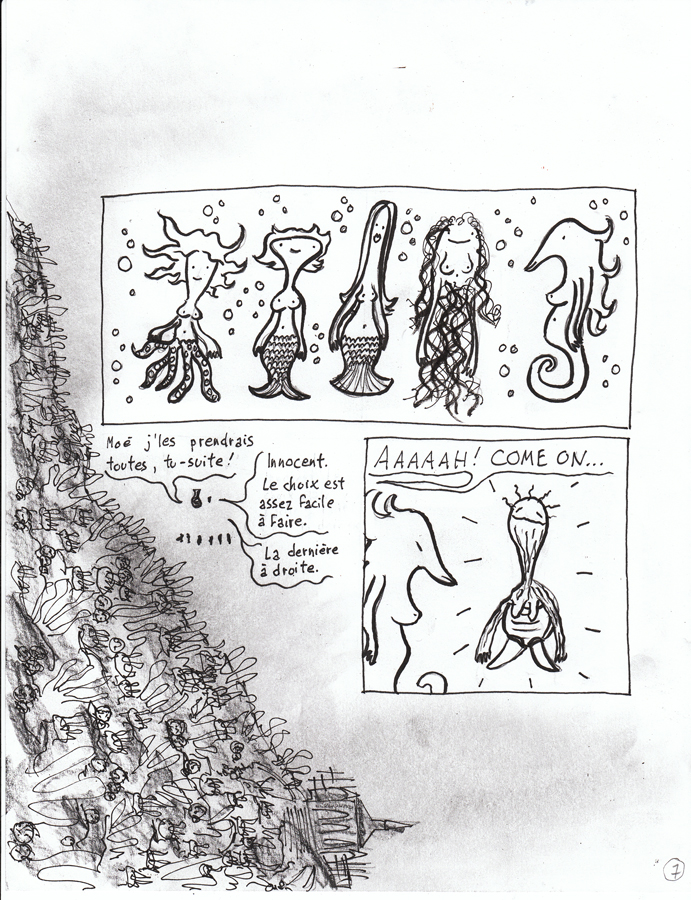 Moé j'les prendrais
toutes, tu-suite!
Innocent.
Le choix est
assez facile
à faire.
La dernière
à droite.
AAAAAH! COME ON...
7